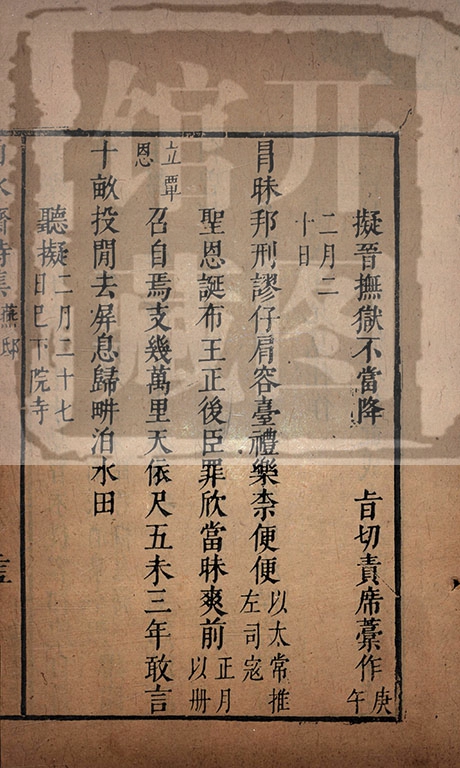 擬晉撫獄不當降　旨切責席藁作庚午
二月二十日
冒昧邦刑謬仔肩容臺禮樂柰便便以太常推左司寇
聖恩誕布王正後臣罪欣當昧爽前正月以册
立覃恩召自焉支幾萬里天依尺五未三年敢言
十畝投閒去屏息歸畊泊水田
聽擬二月二十七日巳下院寺
水齋詩集燕邸
开图
馆藏